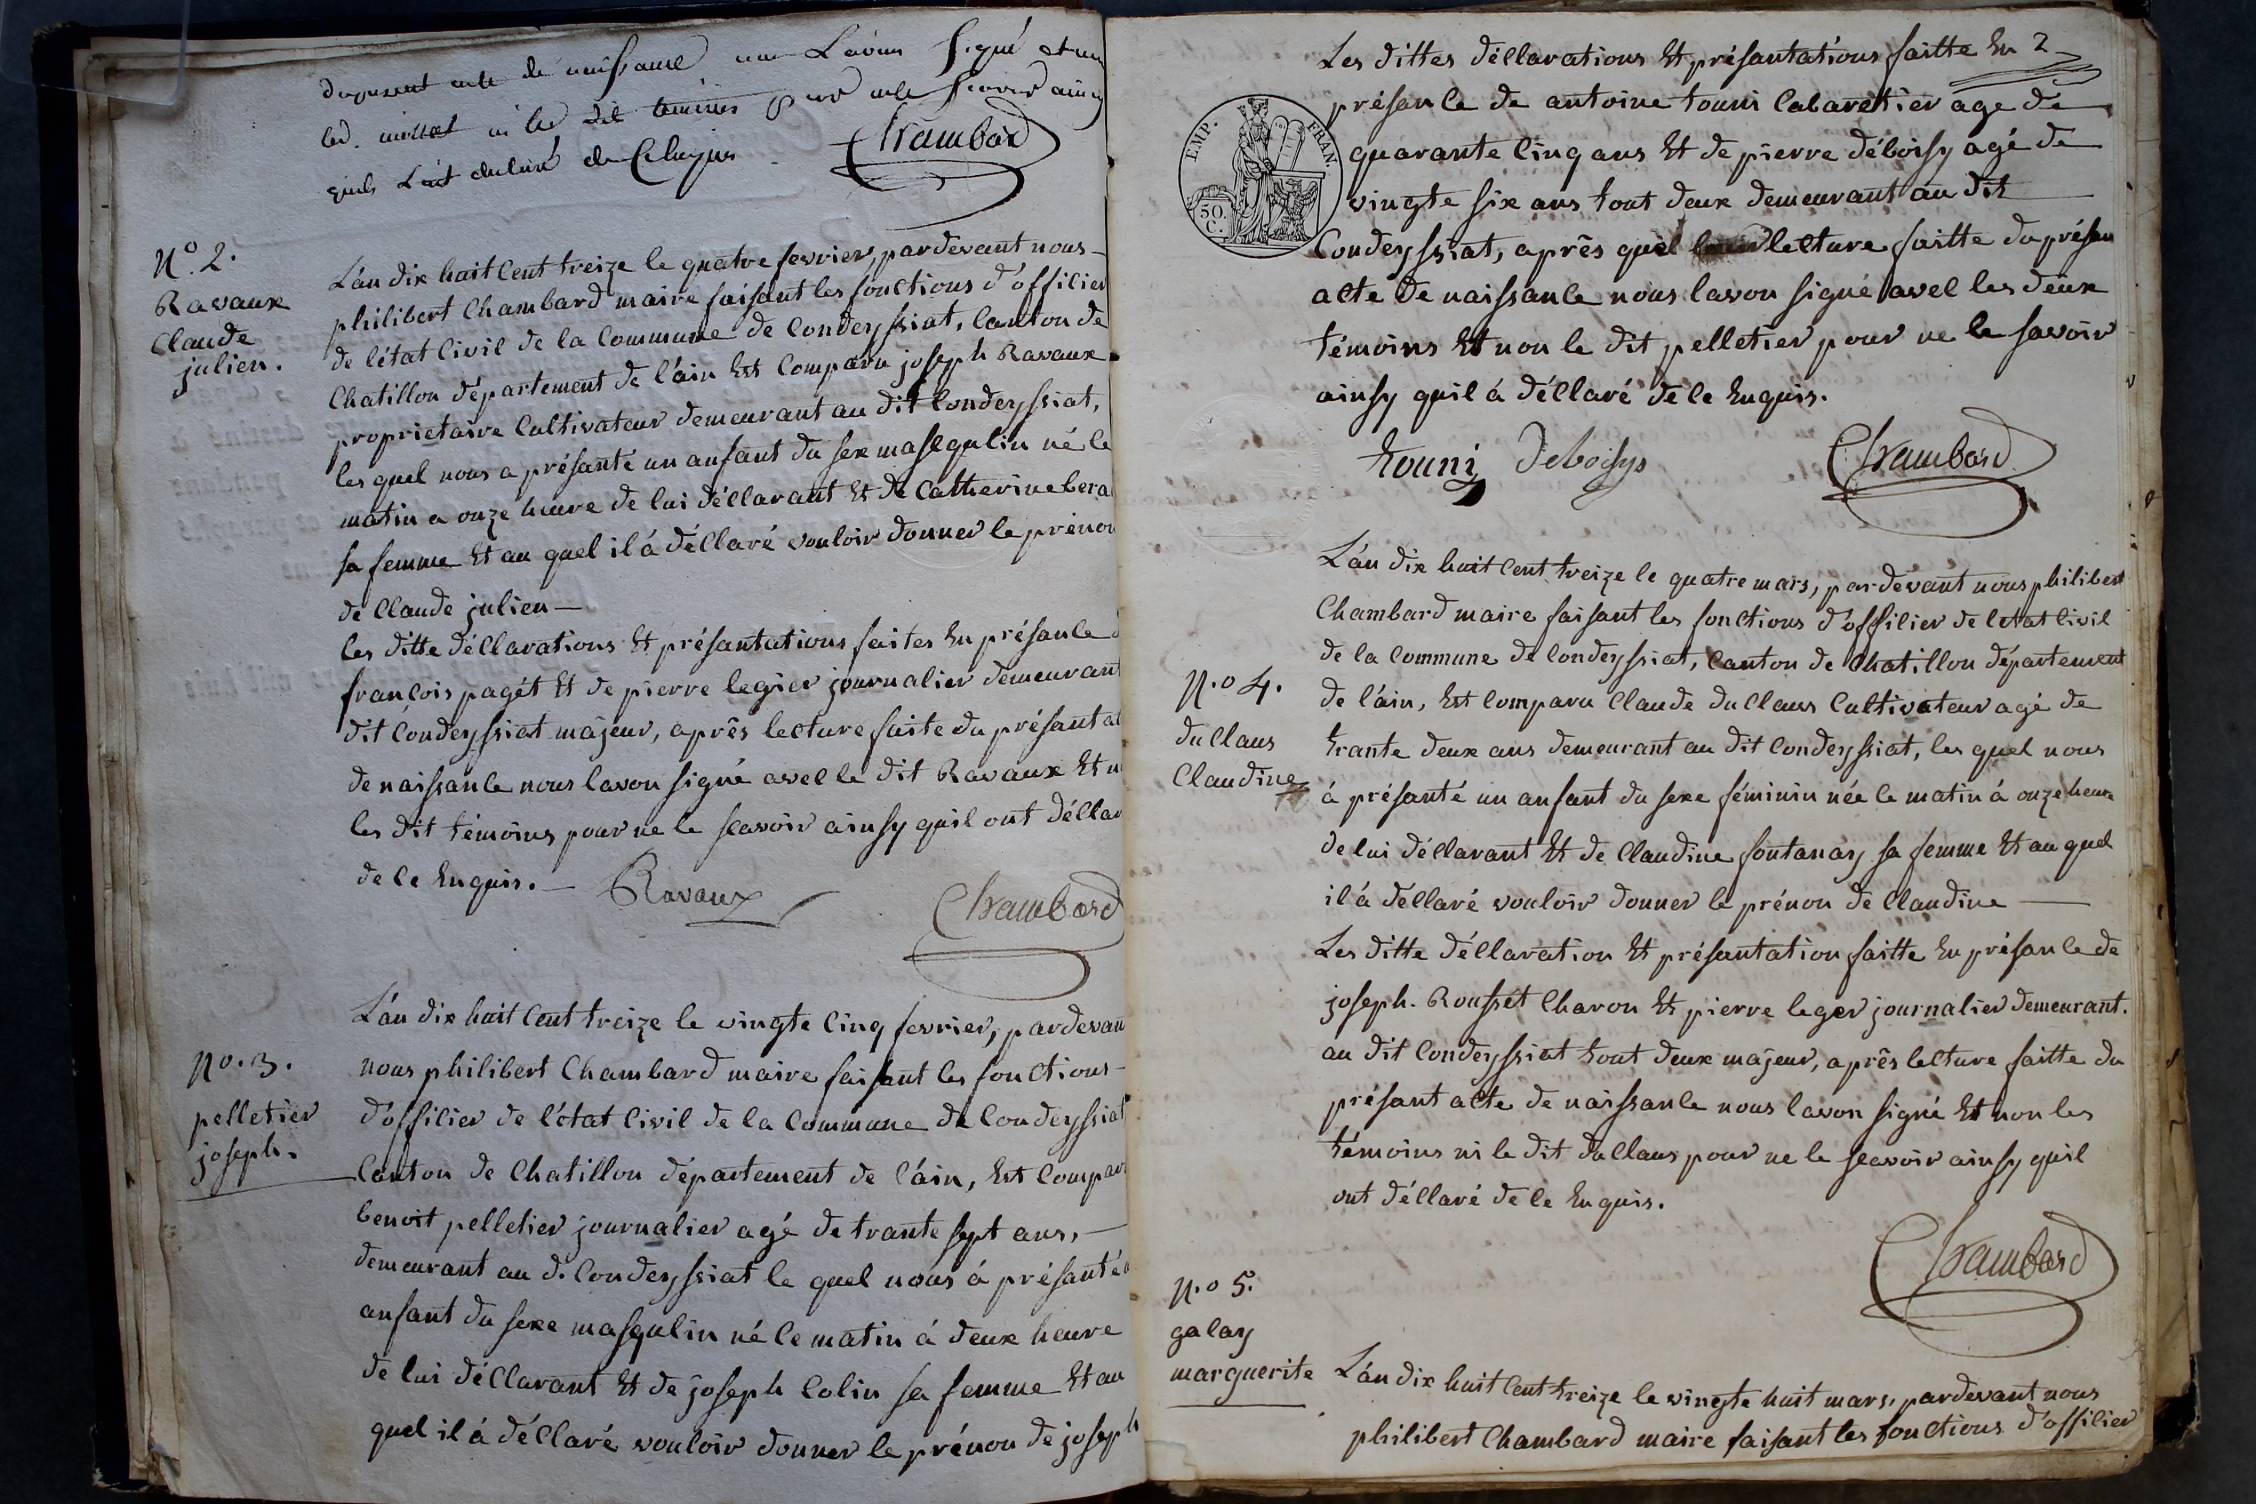 du présent acte de naissance nous l'avons signé et non
led. millet ni les dit temoins pour ne le scavoir ainsy
qu'ils l'ont declaré de Ce Enquis
Chambard
N.º 2.
Ravaux
Claude
julien.
L'án dix huit Cent treize le quatre fevrier, pardevant nous
philibert Chambard maire faisant les fonctions d'officier
de l'état Civil de la Commune de Condeyssiat, Canton de
Chatillon département de l'áin Est Comparu joseph Ravaux
proprietaire Cultivateur demeurant au dit Condeyssiat,
les quel nous a présanté un anfant du sex masequlin né le
matin a onze heure de lui déCLarant Et de Catherine bera
sa femme Et au quel il á déCLaré vouloir donner le prénon
de Claude julien
les ditte déCLarations Et présantations faites En présance d
francois pagét Et de pierre legier journalier demeurant
dit Condeyssiat májeur, aprês lecture faite du présant a
de naissance nous lavon signé avec le dit Ravaux Et n
les dit témoins pour ne le scavoir ainsy quil ont déCLar
de Ce Enquis.
Ravaux
Chambard
nº. 3.
pelletier
joseph.
L'án dix huit Cent treize le vingte Cinq fevrier, pardevan
nous philibert Chambard maire faisant les fonctions
d'officier de l'état Civil de la Commune de Condeyssiat
Canton de Chatillon département de l'áin, Est Compar
benoit pelletier journalier agé de trante sept ans,
demeurant au d. Condeyssiat le quel nous á présanté
anfant du sexe masqulin né le matin á deux heure
de lui déCLarant Et de joseph Colin sa femme Et au
quel il á déCLaré vouloir donner le prénon de joseph
Les dittes déCLarations Et présantations faitte En 2
présance de antoine touni Cabaretier age de
quarante Cinq ans Et de pierre déboisy agé de
vingte six ans tout deux demeurant au dit
Condeyssiat, aprês quel lecture faitte du présen
acte de naissance nous lavon signé avec les deux
témoins Et non le dit pelletier pour ne le savoir
ainsy quil á déCLaré de Ce Enquis.
EMP. FRAN.
50. C.
touni deboisys Chambard
L'án dix huit Cent treize le quatre mars, pardevant nous philibert
Chambard maire faisant les fonctions d'officier de létat Civil
de la Commune de Condeyssiat, Canton de Chatillon département
n.º 4.
duClaus
Claudine
de l'áin, Est Comparu Claude duClaus Cultivateur agé de
trante deux ans demeurant au dit Condeyssiat, les quel nous
á présanté un anfant du sexe féminin née le matin á onze heure
de lui déCLarant Et de Claudine fontanay sa femme Et au quel
il á déCLaré vouloir donner le prénon de Claudine
Les ditte déCLaration Et présantation faitte En présance de
joseph. Roussét Charon Et pierre leger journalier demeurant.
au dit Condeyssiat tout deux májeur, aprês lecture faitte du
présant acte de naissance nous lavon signé Et non les
témoins ni le dit duClaus pour ne le scavoir ainsy quil
ont déCLaré de Ce Enquis.
Chambard
n.º 5.
galay
marguerite
L'án dix huit Cent treize le vingte huit mars, pardevant nous
philibert Chambard maire faisant les fonctions d'officier